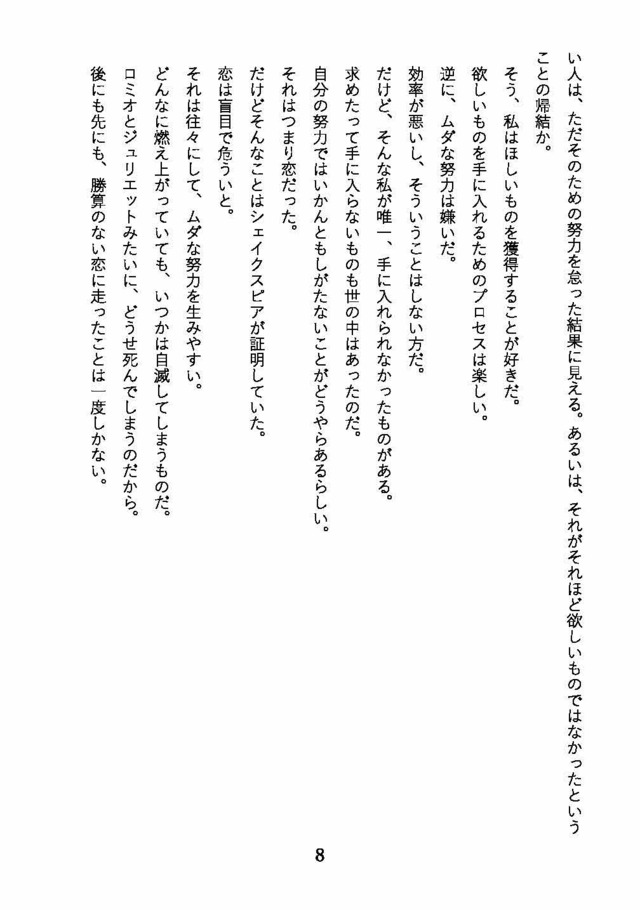 い人は、ただそのための努力を怠った結果に見える。あるいは、それがそれほど欲しいものではなかったという
ことの帰結か。
そう、私はほしいものを獲得することが好きだ。
欲しいものを手に入れるためのプロセスは楽しい。
逆に、ムダな努力は嫌いだ。
効率が悪いし、そういうことはしない方だ。
だけど、そんな私が唯一、手に入れられなかったものがある。
求めたって手に入らないものも世の中はあったのだ。
自分の努力ではいかんともしがたないことがどうやらあるらしい。
それはつまり恋だった。
だけどそんなことはシェイクスピアが証明していた。
恋は盲目で危ういと。
それは往々にして、ムダな努力を生みやすい。
どんなに燃え上がっていても、いつかは自滅してしまうものだ。
ロミオとジュリエットみたいに、どうせ死んでしまうのだから。
後にも先にも、勝算のない恋に走ったことは一度しかない。
8